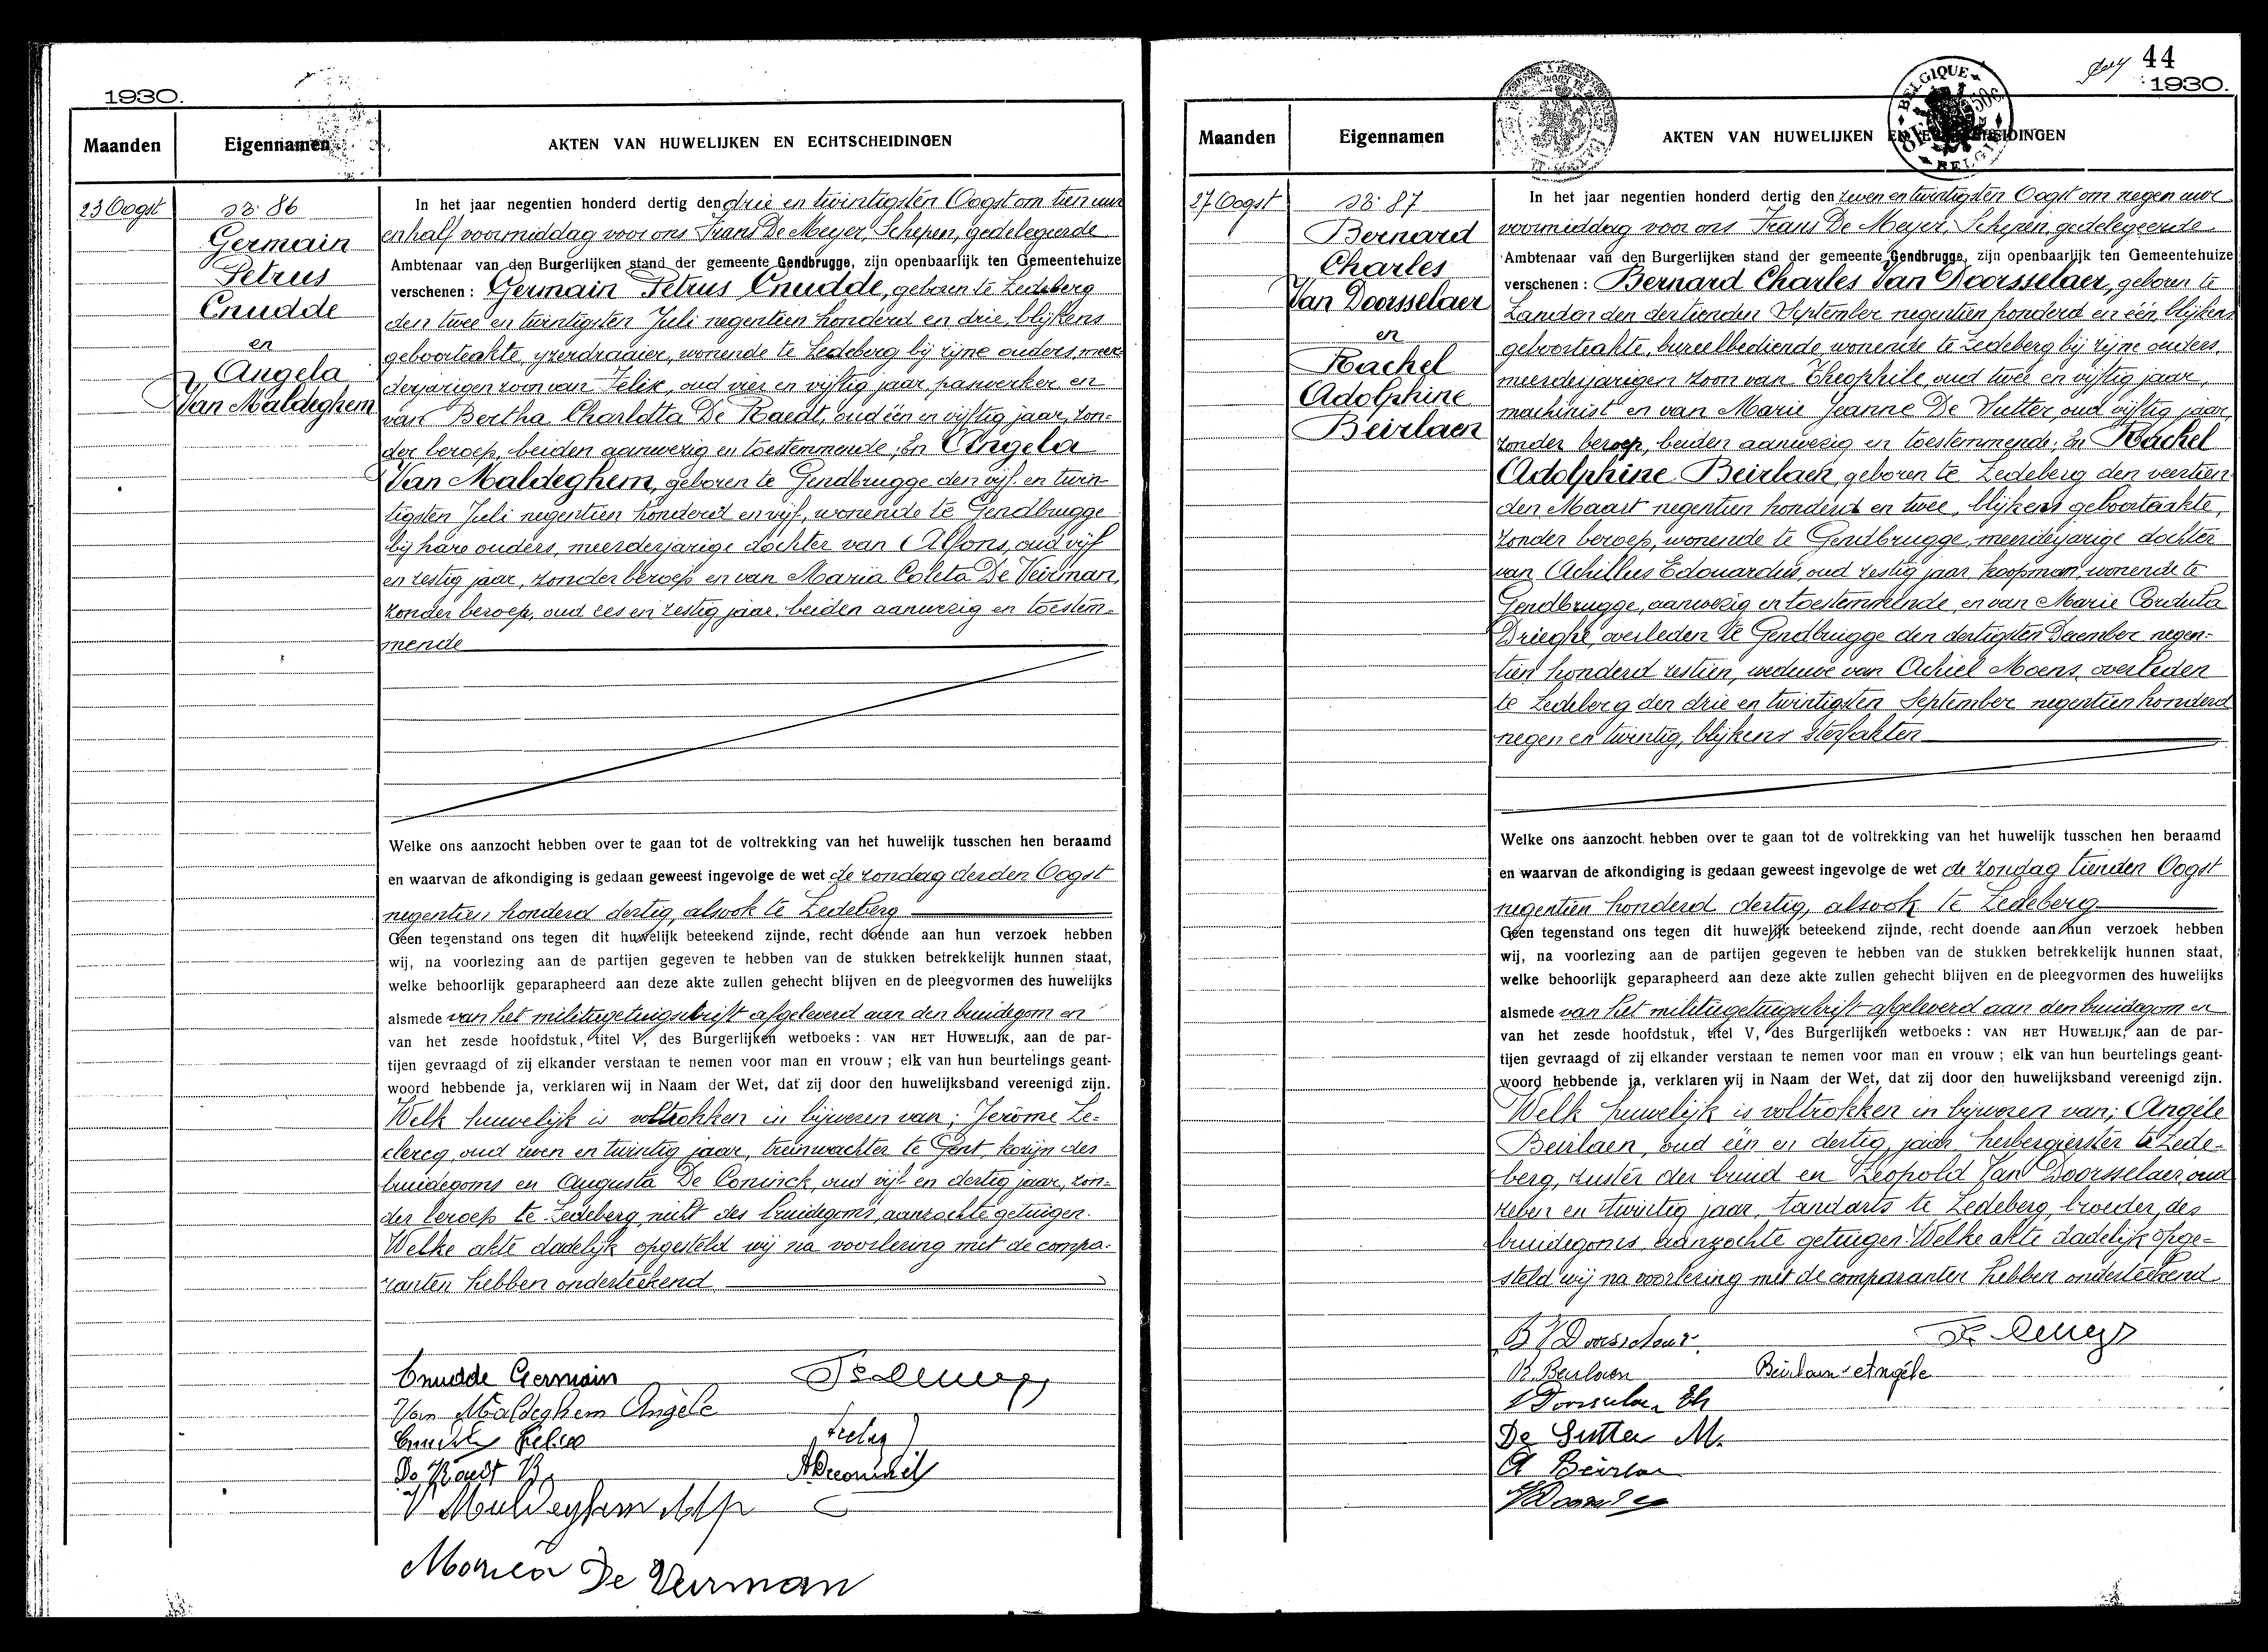 1930.
Maanden
Eigennamen
AKTEN VAN HUWELIJKEN EN ECHTSCHEIDINGEN
23 Oogst
N: 86
Germain
Petrus
Cnudde
en
Angela
Van Maldeghem
In het jaar negentien honderd dertig den drie en twintigsten Oogst om tien uur
en half voormiddag voor ons Frans De Meyer, Schepen, gedelegeerde
Ambtenaar van den Burgerlijken stand der gemeente Gendbrugge, zijn openbaarlijk ten Gemeentehuize
verschenen : Germain Petrus Cnudde, geboren te Ledeberg
den twee en twintigsten Juli negentien honderd en drie, blijkens
geboorteakte, yzerdraaier, wonende te Ledeberg bij zijne ouders, meer-
derjarigen zoon van Felix, oud vier en vijftig jaar, paswerker en
van Bertha Charlotta De Raedt, oud één en vijftig jaar, zon-
der beroep, beiden aanwezig en toestemmende; En Angela
Van Maldeghem, geboren te Gendbrugge den vijf en twin-
tigsten Juli negentien honderd en vijf, wonende te Gendbrugge
bij hare ouders, meerderjarige dochter van Alfons, oud vijf
en zestig jaar, zonder beroep en van Maria Coleta De Veirman,
zonder beroep, oud zes en zestig jaar, beiden aanwezig en toestem-
mende
Welke ons aanzocht hebben over te gaan tot de voltrekking van het huwelijk tusschen hen beraamd
en waarvan de afkondiging is gedaan geweest ingevolge de wet de zondag derden Oogst
negentien honderd dertig, alsook te Ledeberg
Geen tegenstand ons tegen dit huwelijk beteekend zijnde, recht doende aan hun verzoek hebben
wij, na voorlezing aan de partijen gegeven te hebben van de stukken betrekkelijk hunnen staat,
welke behoorlijk geparapheerd aan deze akte zullen gehecht blijven en de pleegvormen des huwelijks
alsmede van het militiegetuigschrift afgeleverd aan den bruidegom en
van het zesde hoofdstuk, titel V, des Burgerlijken wetboeks : VAN HET HUWELIJK, aan de par-
tijen gevraagd of zij elkander verstaan te nemen voor man en vrouw ; elk van hun beurtelings geant-
woord hebbende ja, verklaren wij in Naam der Wet, dat zij door den huwelijksband vereenigd zijn.
Welk huwelijk is voltrokken in bijwezen van; Jerôme Le-
clercq, oud zeven en twintig jaar, treinwachter te Gent, kozijn des
bruidegoms en Augusta De Coninck, oud vijf en dertig jaar, zon-
der beroep te Ledeberg, nicht des bruidegoms, aanzochte getuigen.
Welke akte dadelijk opgesteld wij na voorlezing met de compa-
ranten hebben onderteekend
Cnudde Germain
Van Maldeghem Angèle
Cnudde Felix
De Raedt B.
V Maldeghem Alf
Maria De Veirman
44
1930.
BELGIQUE
BELGIË
Maanden
Eigennamen
AKTEN VAN HUWELIJKEN EN ECHTSCHEIDINGEN
27 Oogst
N: 87
Bernard
Charles
Van Doorsselaer
en
Rachel
Adolphine
Beirlaen
In het jaar negentien honderd dertig den zeven en twintigsten Oogst om negen uur
voormiddag voor ons Frans De Meyer, Schepen, gedelegeerde
Ambtenaar van den Burgerlijken stand der gemeente Gendbrugge, zijn openbaarlijk ten Gemeentehuize
verschenen : Bernard Charles Van Doorsselaer, geboren te
den dertienden September negentien honderd en één, blijkens
geboorteakte, bureelbediende, wonende te Ledeberg bij zijne ouders,
meerderjarigen zoon van Theophile, oud twee en vijftig jaar,
machinist en van Marie Jeanne De Sutter, oud vijftig jaar,
zonder beroep, beiden aanwezig en toestemmende; En Rachel
Adolphine Beirlaen, geboren te Ledeberg den veertien-
den Maart negentien honderd en twee, blijkens geboorteakte,
zonder beroep, wonende te Gendbrugge, meerderjarige dochter
van Achillus Edouardus, oud zestig jaar, koopman, wonende te
Gendbrugge, aanwezig en toestemmende, en van Marie Cordula
Drieghe, overleden te Gendbrugge den dertigsten December negen-
tien honderd zestien, weduwe van Achiel Moens, overleden
te Ledeberg den drie en twintigsten September negentien honderd
negen en twintig, blijkens sterfakten
Welke ons aanzocht hebben over te gaan tot de voltrekking van het huwelijk tusschen hen beraamd
en waarvan de afkondiging is gedaan geweest ingevolge de wet de zondag tienden Oogst
negentien honderd dertig, alsook te Ledeberg
Geen tegenstand ons tegen dit huwelijk beteekend zijnde, recht doende aan hun verzoek hebben
wij, na voorlezing aan de partijen gegeven te hebben van de stukken betrekkelijk hunnen staat,
welke behoorlijk geparapheerd aan deze akte zullen gehecht blijven en de pleegvormen des huwelijks
alsmede van het militiegetuigschrift afgeleverd aan den bruidegom en
van het zesde hoofdstuk, titel V, des Burgerlijken wetboeks : VAN HET HUWELIJK, aan de par-
tijen gevraagd of zij elkander verstaan te nemen voor man en vrouw ; elk van hun beurtelings geant-
woord hebbende ja, verklaren wij in Naam der Wet, dat zij door den huwelijksband vereenigd zijn.
Welk huwelijk is voltrokken in bijwezen van; Angèle
Beirlaen, oud één en dertig jaar, herbergierster te Lede-
berg, zuster der bruid en Leopold Van Doorsselaer, oud
zeven en twintig jaar, tandarts te Ledeberg, broeder des
bruidegoms, aanzochte getuigen. Welke akte dadelijk opge-
steld wij na voorlezing met de comparanten hebben onderteekend.
B V Doorsselaer
R. Beirlaen
Beirlaen Angèle
V Doorsselaer Th
De Sutter M.
A Beirlaen